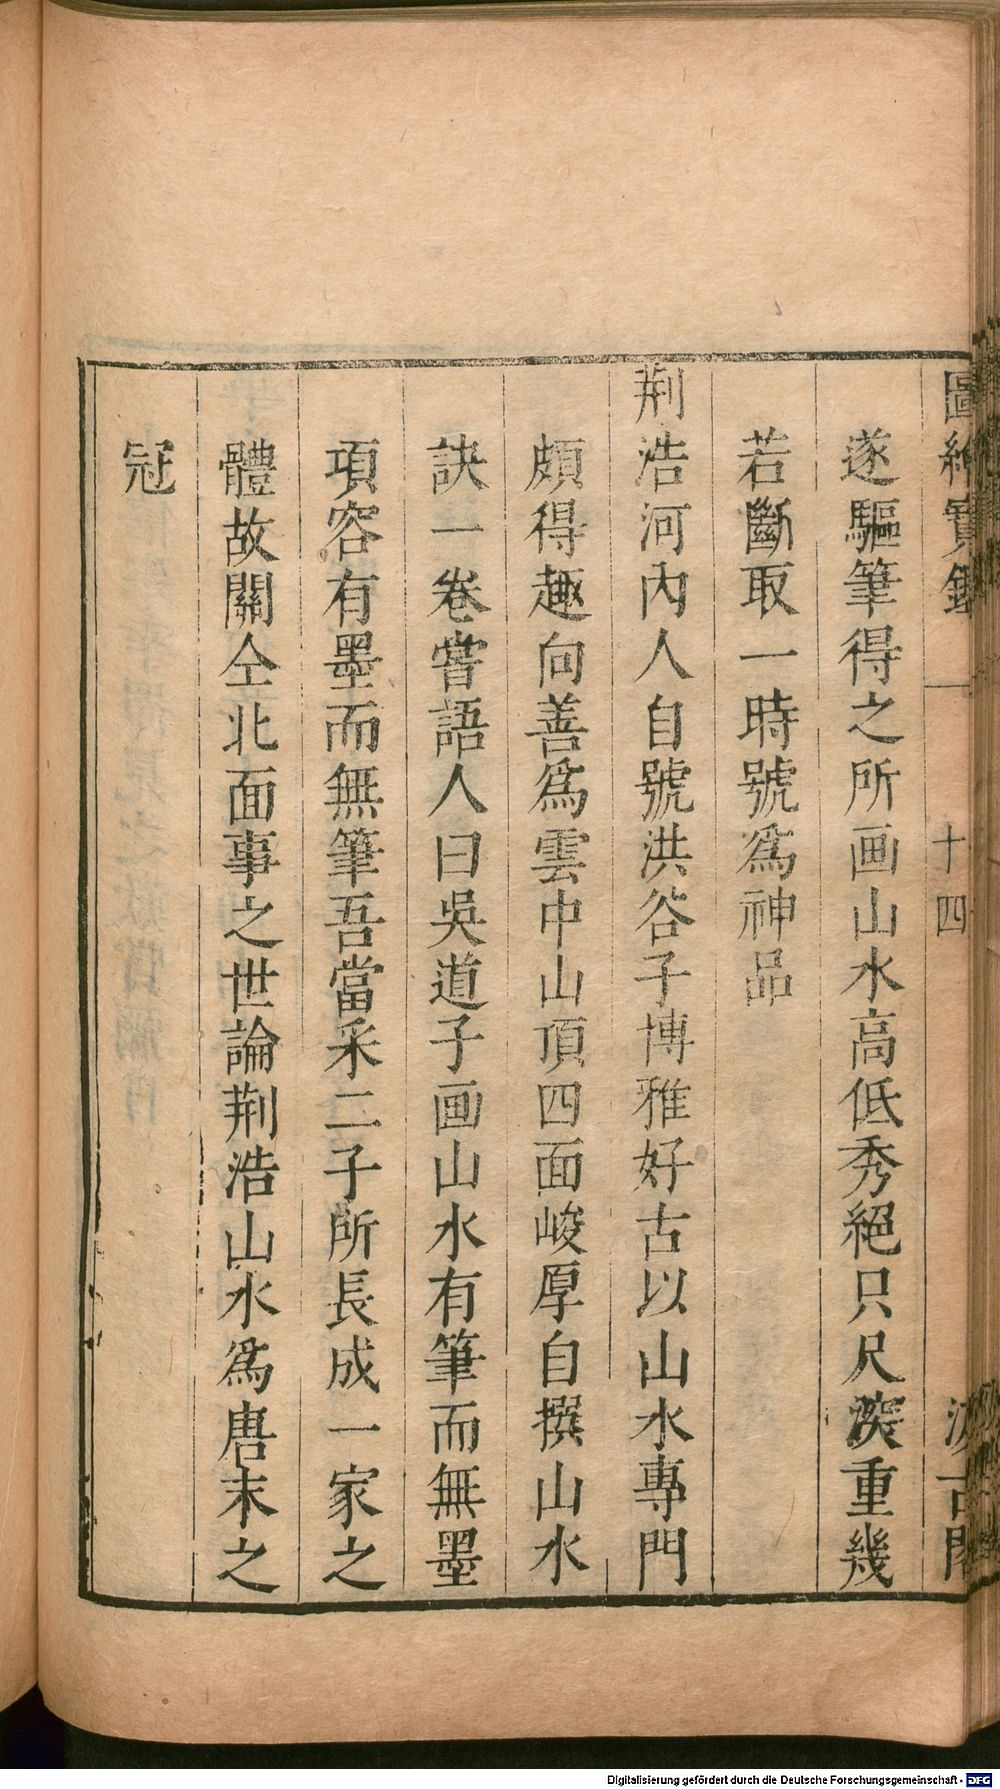 圖繪寶鑑 十四 汲古閣
遂驅筆得之所画山水高低秀絕只尺深重幾
若斷取一時號爲神品
荆浩河內人自號洪谷子博雅好古以山水專門
頗得趣向善爲雲中山頂四面峻厚自撰山水
訣一卷嘗語人曰吳道子画山水有筆而無墨
項容有墨而無筆吾當采二子所長成一家之
體故關仝北面事之世論荆浩山水爲唐末之
冠
Digitalisierung gefördert durch die Deutsche Forschungsgemeinschaft - DFG